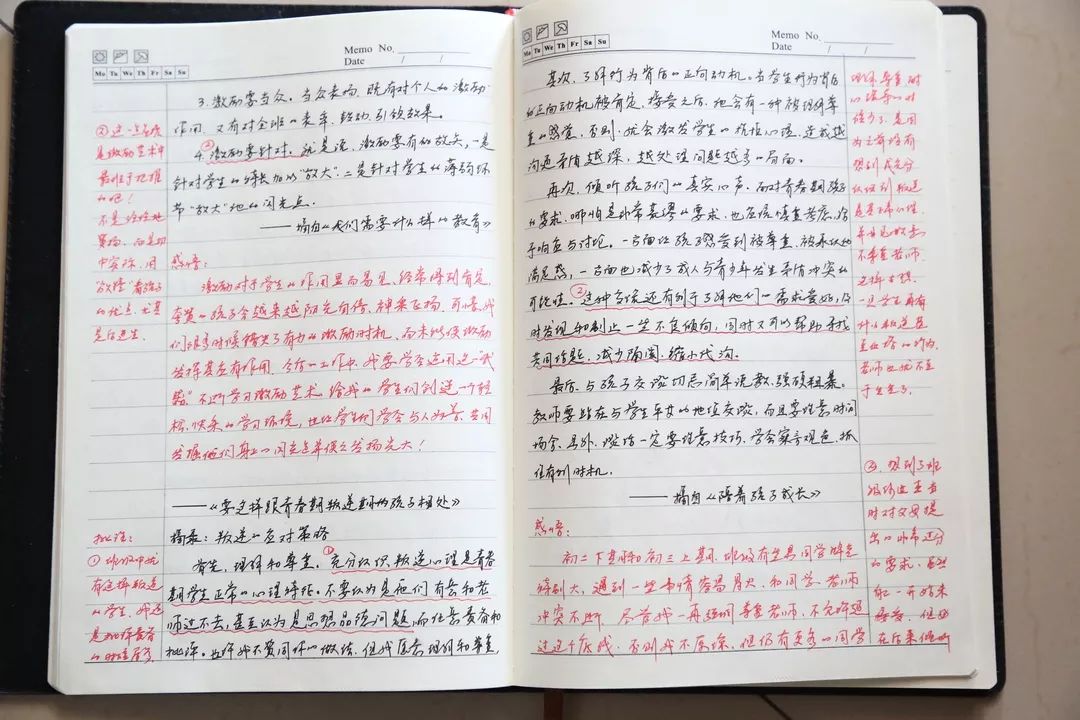 Memo No.
Date / /
Mo Tu We Th Fr Sa Su
3. 激励要当众。当众表扬，既有对个人的激励
作用，又有对全班的表率、鼓动、引领效果。
③
4. 激励要针对。就是说，激励要有的放矢，一是
针对学生的特长加以"放大"；二是针对学生的薄弱环
节"放大"他的闪光点。
——摘自《我们需要什么样的教育》
②这一点应
是激励艺术中
最难于把握
的吧！
不是给给地
表扬，而是切
中实际，用
欣赏看孩子
的优点，尤其
是后进生。
感悟：
激励对于学生的作用显而易见，经常得到肯定、
李贺的孩子会越来越阳光自信、神采飞扬，可惜，我
们很多时候错失了有力的激励时机，而未能使激励
发挥其应有作用。今后的工作中，我要学会运用这一"武
器"，不断学习激励艺术，给我的学生们创造一个轻
松、快乐的学习环境，也让学生们学会与人为善，共同
发掘他们身上的闪光点并使之发扬光大！
——《要这样跟青春期叛逆期的孩子相处》
批注：
①班级中就
有这样叛逆
的学生，我还
是
摘录：叛逆的应对策略
首先，理解和尊重。①充分认识，叛逆心理是青春
期学生正常的心理特征。不要认为是他们有意和老
师过不去，甚至认为是思想品德问题，而任意责备和
批评。也许我不赞同你的做法，但我愿意理解和尊重。
Memo No.
Date / /
Mo Tu We Th Fr Sa Su
其次，了解行为背后的正向动机。当学生行为背后
的正向动机被肯定、接受之后，他会有一种被理解尊
重的感觉，否则，就会激发学生的抗拒心理，造成越
沟通矛盾越深，越处理问题越多的局面。
再次，倾听孩子们的真实心声。面对青春期孩子
的要求，哪怕是非常荒谬的要求，也应该慎重考虑，给
予响应与讨论。一方面让孩子感受到被尊重、被承认的
满足感，一方面也减少了成人与青少年发生矛盾冲突的
可能性。②这种方式还有利于了解他们的需求爱好，及
时发现和制止一些不良倾向，同时又可以帮助寻找
共同话题，减少隔阂、缩小代沟。
最后，与孩子交谈切忌简单说教、强硬粗暴。
教师要站在与学生平等的地位交谈，而且要注意时间
场合。另外，谈话一定要注意技巧，学会察言观色，抓
住有利时机。
——摘自《陪着孩子成长》
感悟：
初二下期和初三上期，班级有些男同学脾气
特别大，遇到一些事情容易冒火，和同学、老师
冲突不断，尽管我一再强调尊重老师，不允许越
过这个底线，否则我不原谅，但仍有更多的同学
理解尊重，耐
心疏导的时
候少了，是因
为之前没有
想到或充分
认识到叛逆
是正常心理，
并非是故意
不尊重老师。
之样去想，
一旦学生再有
什么叛逆甚
至出格的行为，
老师也就不至
于生气了。
②想到了班
级
时对父母提
出的非常过分
的要求，虽然
他一开始未
接受，但
在后来倾听